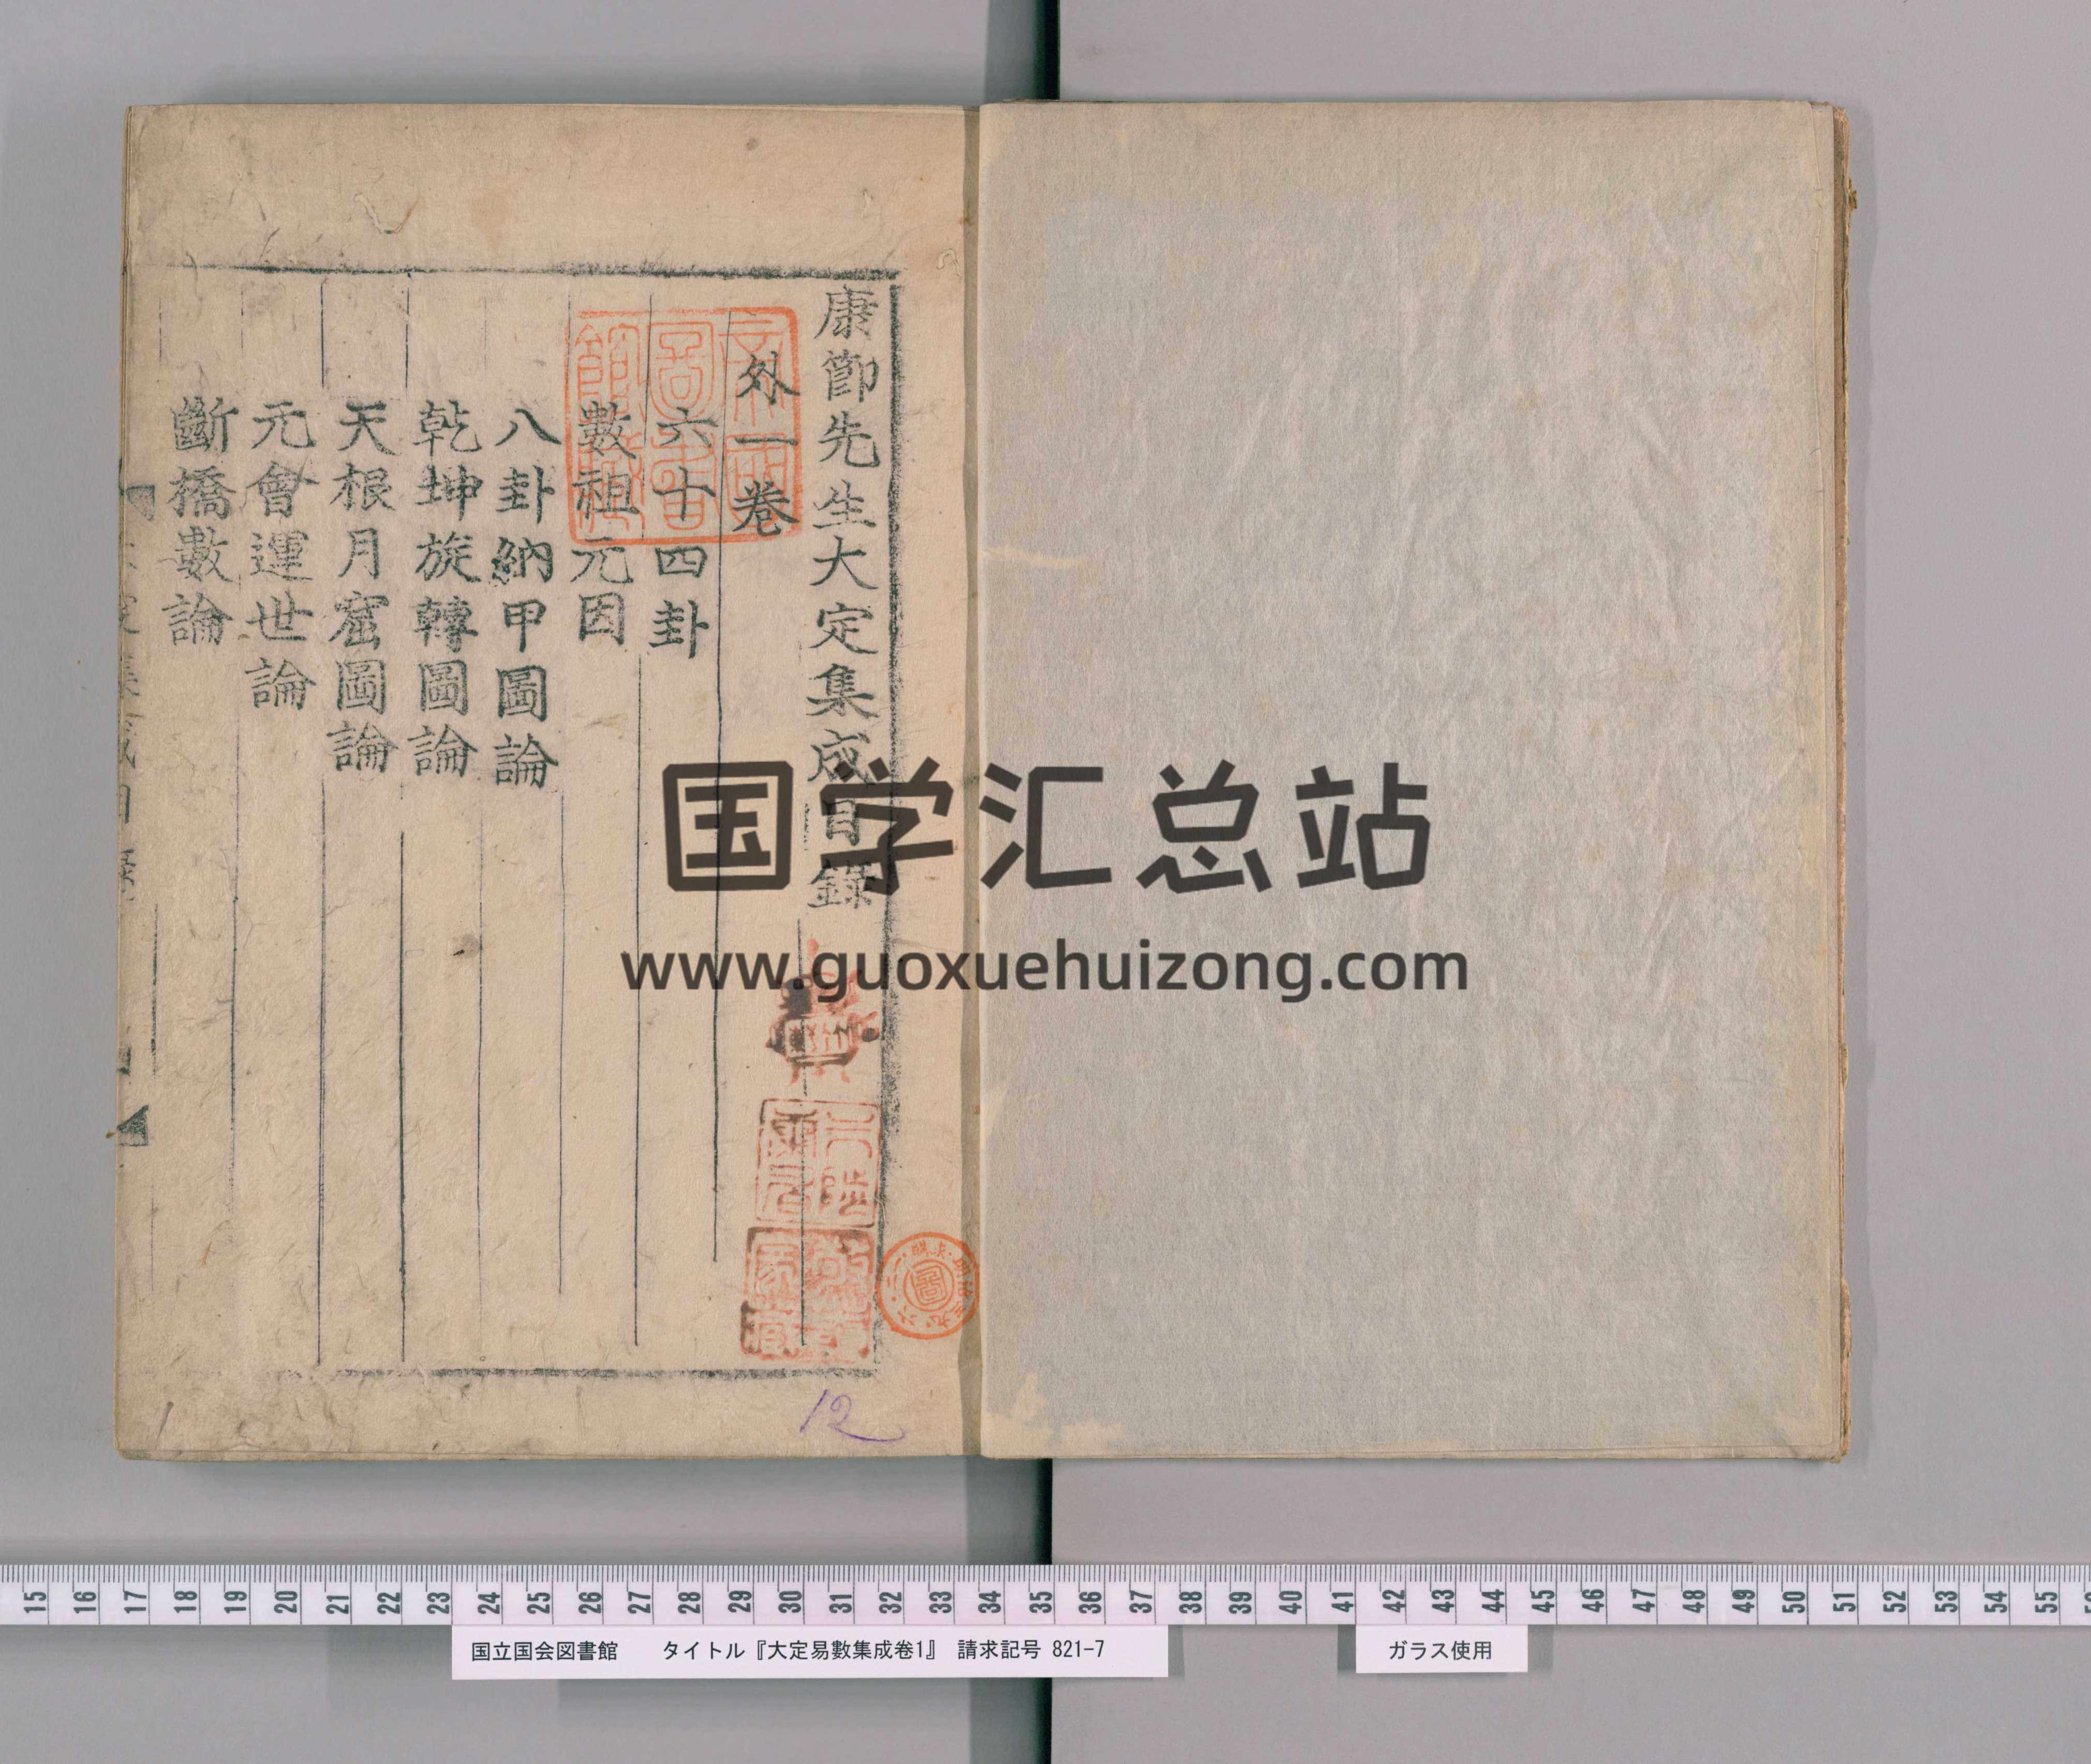 康節先生大定集成目錄
外一卷
六十四卦
數祖元因
八卦納甲圖論
乾坤旋轉圖論
天根月窟圖論
元會運世論
斷橋數論
国学汇总站
www.guoxuehuizong.com
12
15 16 17 18 19 20 21 22 23 24 25 26 27 28 29 30 31 32 33 34 35 36 37 38 39 40 41 42 43 44 45 46 47 48 49 50 51 52 53 54 55
国立国会図書館 タイトル『大定易數集成卷1』 請求記号 821-7
ガラス使用